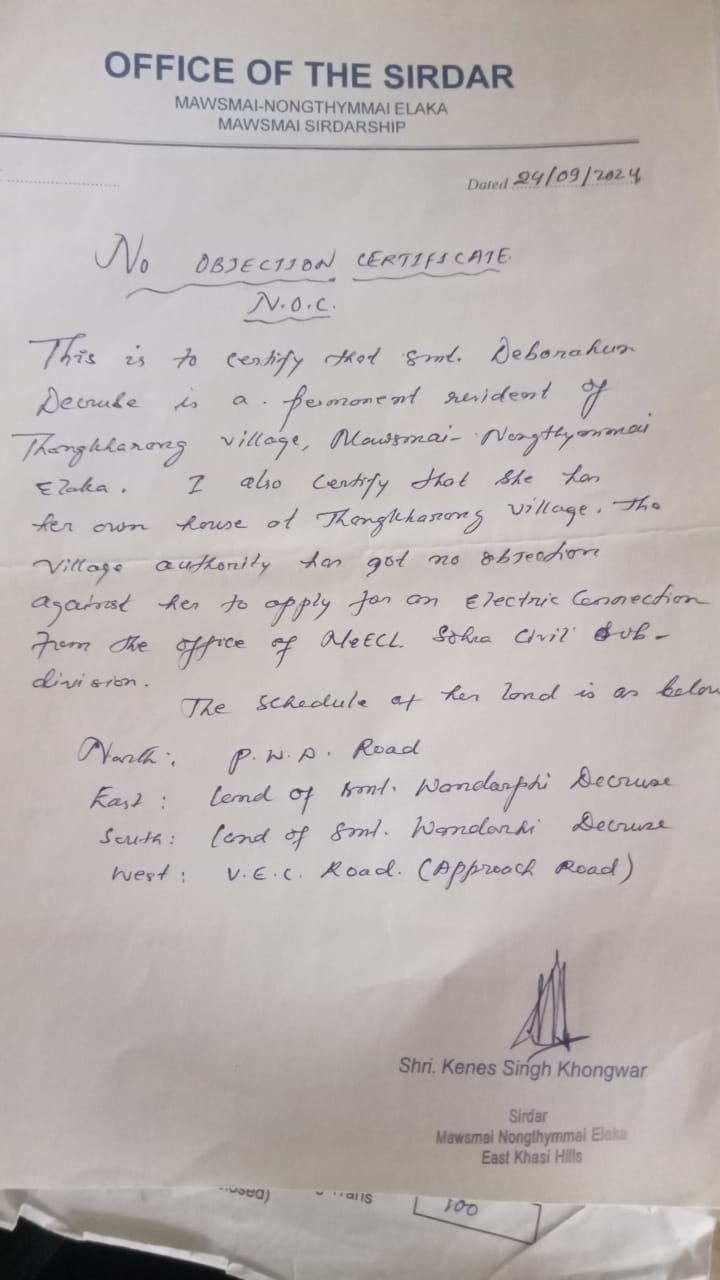 OFFICE OF THE SIRDAR
MAWSMAI-NONGTHYMMAI ELAKA
MAWSMAI SIRDARSHIP
Dated 24/09/2024
No OBJECTION CERTIFICATE
N.O.C.
This is to certify that Smt. Deborahun
Decruse is a permanent resident of
Thangkharang village, Mawsmai-Nongthymmai
Elaka. I also certify that she has
her own house at Thangkharang village. The
village authority has got no objection
against her to apply for an Electric Connection
from the office of MeECL Sohra Civil Sub-
division.
The schedule of her land is as below
North: P.W.D. Road
East: land of Smt. Wandarphi Decruse
South: land of Smt. Decruse
West: V.E.C. Road. (Approach Road)
Shri. Kenes Singh Khongwar
Sirdar
Mawsmai Nongthymmai Elaka
East Khasi Hills
100